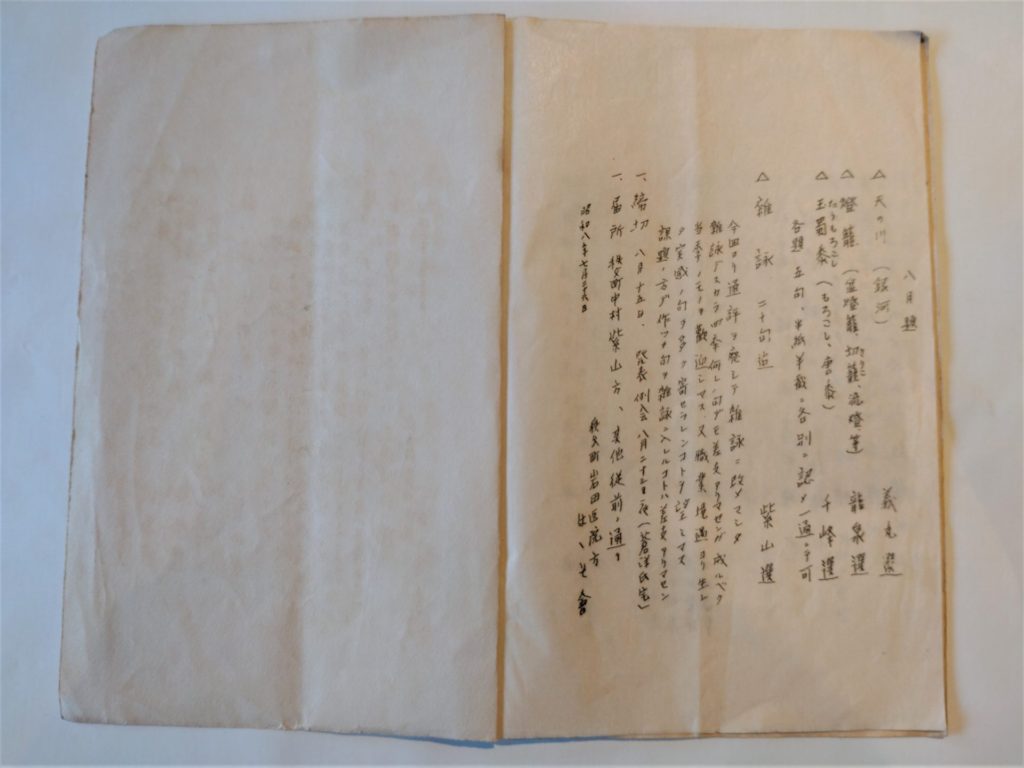 八月題
△ 天の川 (銀河) 義光選
△ 燈籠 (盆燈籠、切籠、流燈筆 龍泉選
△ 玉蜀黍 (もろこし、唐黍) 千峰選
たうもろこし
各題五句、半紙半截ニ各別ニ認メ一通ニテ可
△ 雑詠 二十句迄 紫山選
今回ヨリ通評ヲ廃シテ雑詠ニ改メマシタ
雑詠デスカラ四季何レノ句デモ差支アリマセンガ成ルベク
当季ノモノヲ歓迎シマス、又職業境遇ヨリ生レ
タ実感ノ句ヲ多ク寄セラレンコトヲ望ミマス
課題ノ方デ作ツタ句ヲ雑詠ニ入レルコトハ差支アリマセン
一、締切 八月十五日、発表例会八月二十 日夜(蒼洋氏宅)
一、届所 秩父町中村紫山方、其他従前ノ通リ
昭和八年七月二十 日
秩父町岩田医院方